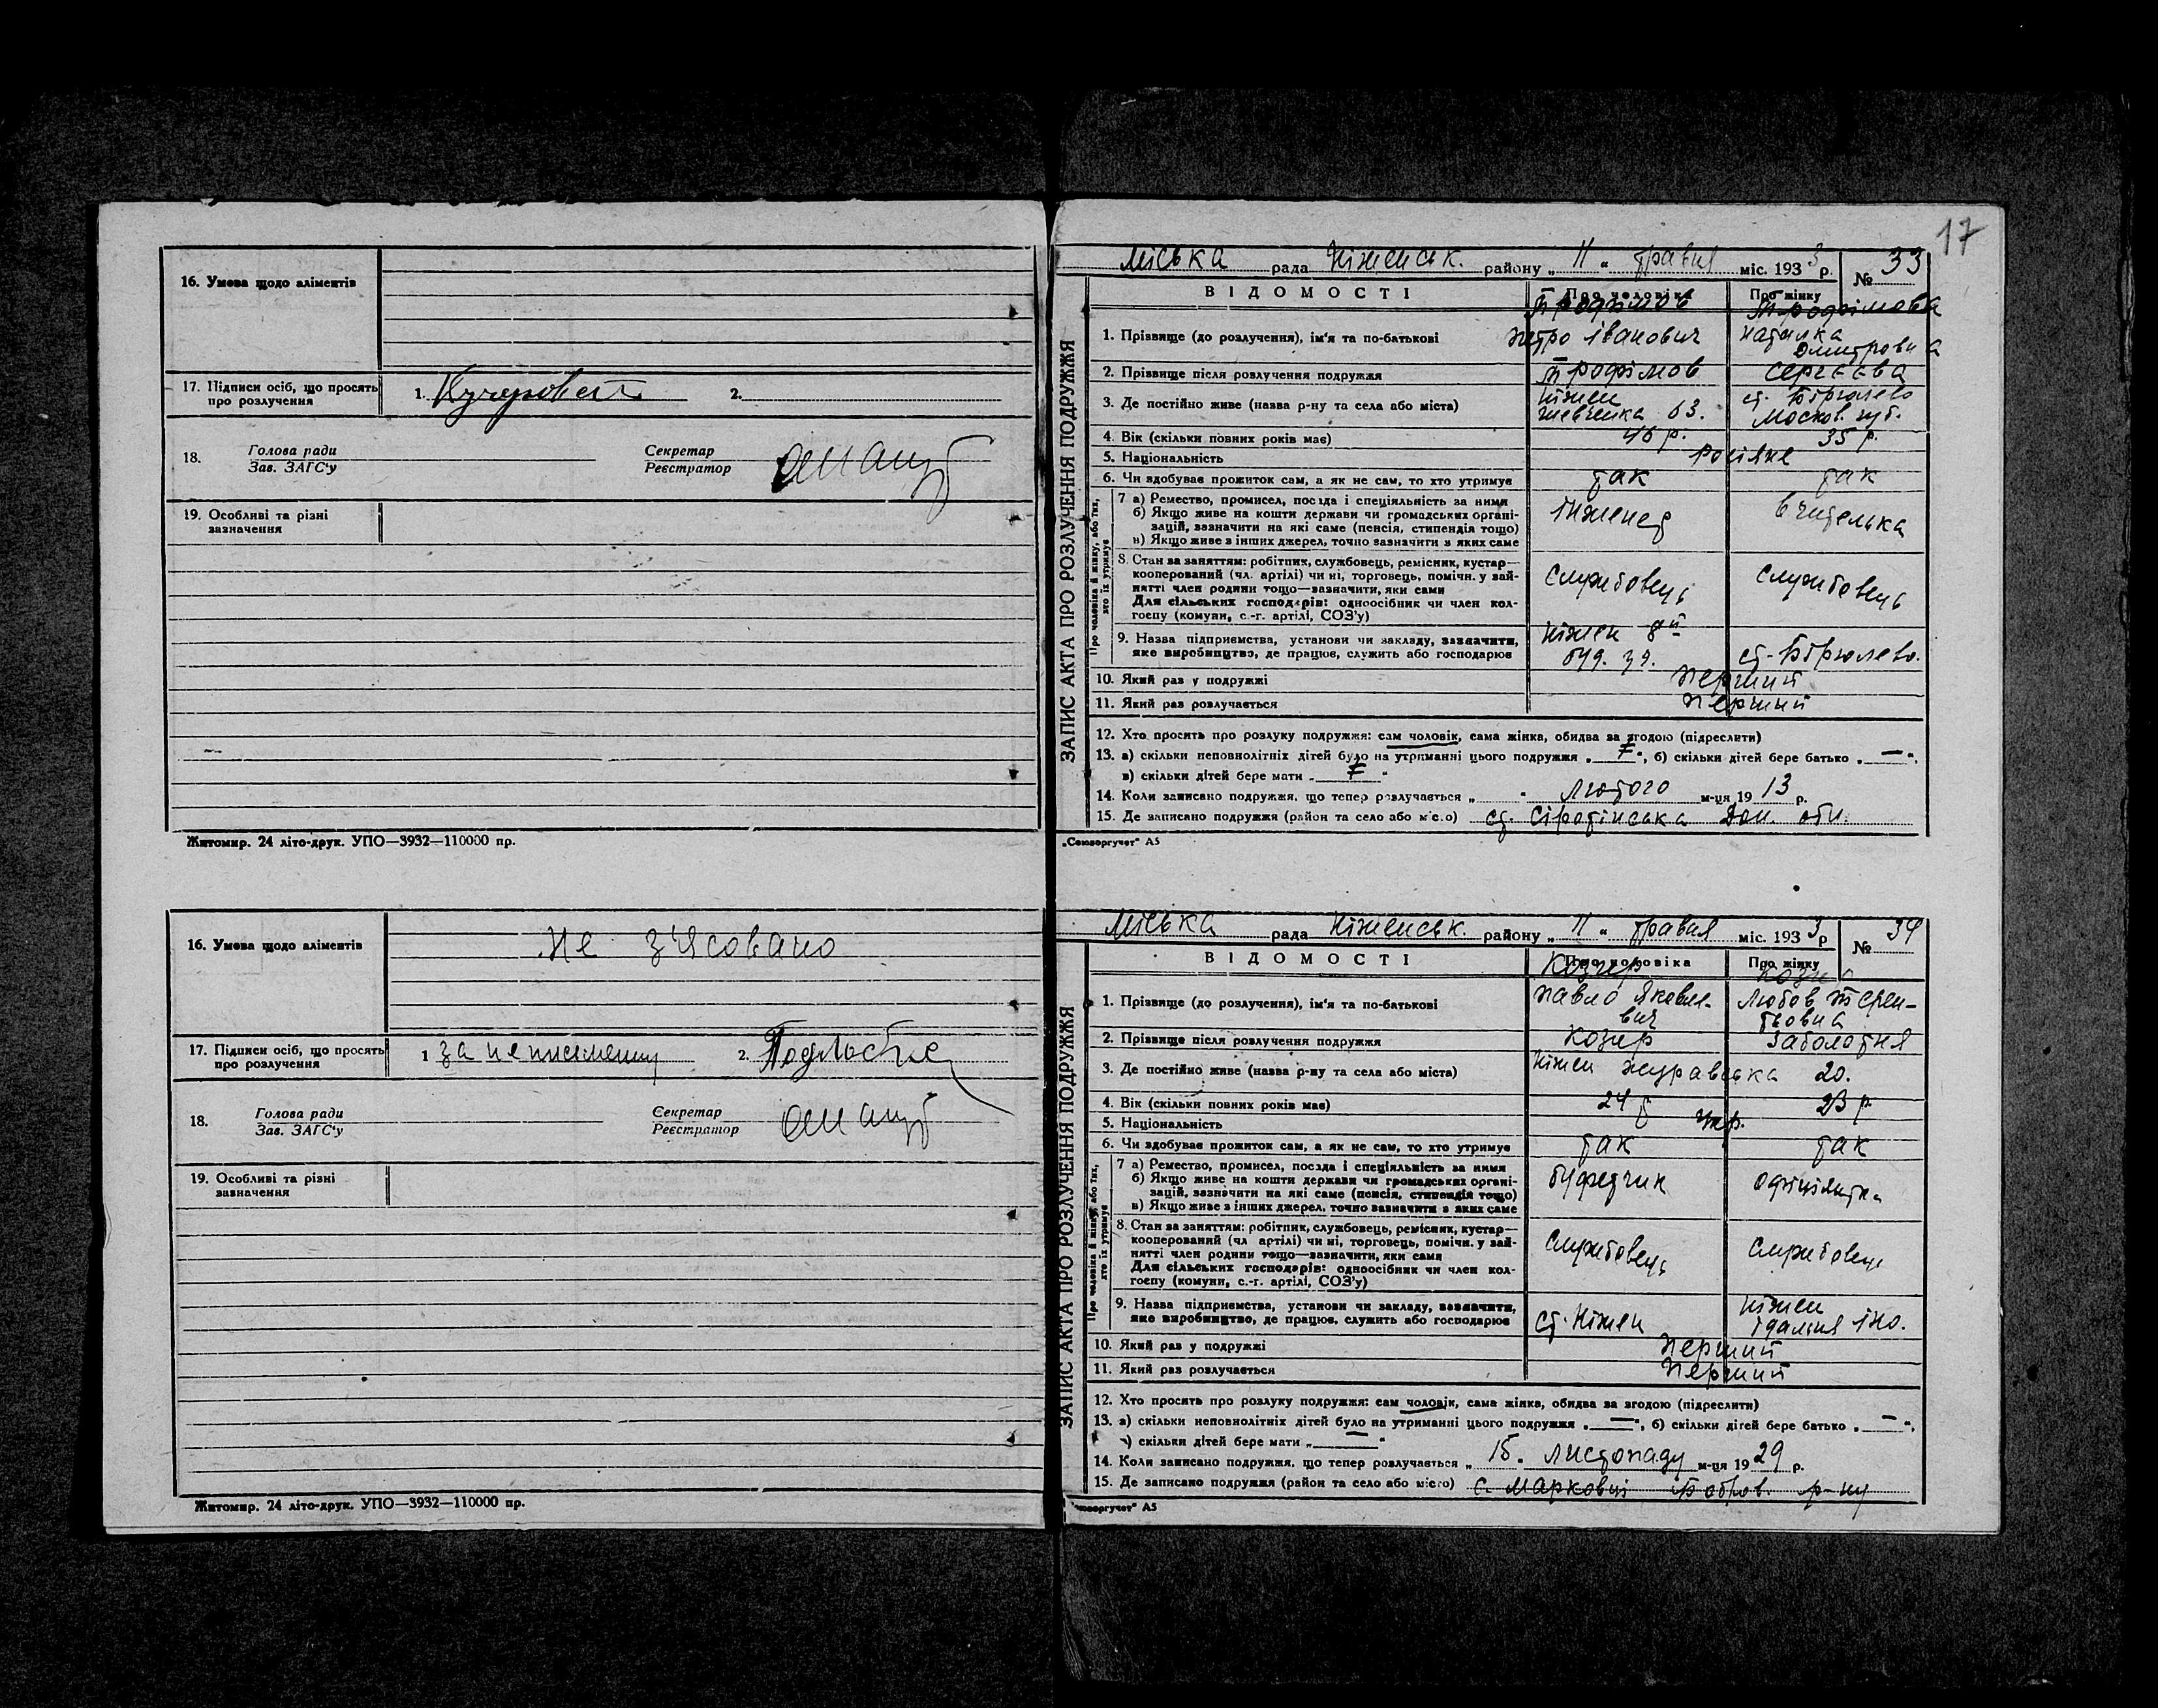 16. Умова щодо аліментів
17. Підписи осіб, що просять
про розлучення
1.
2.
18.
Голова ради
Зав. ЗАГС'у
Секретар
Реєстратор
19. Особливі та різні
зазначення
Житомир. 24 літо-друк. УПО—3932—110000 пр.
16. Умова щодо аліментів
не з'ясовано
17. Підписи осіб, що просять
про розлучення
1 за неписьменну
2.
18.
Голова ради
Зав. ЗАГС'у
Секретар
Реєстратор
19. Особливі та різні
зазначення
Житомир. 24 літо-друк. УПО—3932—110000 пр.
17
ЗАПИС АКТА ПРО РОЗЛУЧЕННЯ ПОДРУЖЖЯ
Міська рада Ніженськ. району „ 11 “ травня міс. 1933 р. № 33
ВІДОМОСТІ Про чоловіка Про жінку
Трофімов Трофімова
1. Прізвище (до розлучення), ім'я та по-батькові Петро Іванович Наталка
Дмитровна
2. Прізвище після розлучення подружжя Трофімов Сергєєва
3. Де постійно живе (назва р-ну та села або міста) Ніжен Шевченка 63. ст. Бірюлево Москов. губ.
4. Вік (скільки повних років має) 46 р. 35 р.
5. Національність Росіяне
6. Чи здобуває прожиток сам, а як не сам, то хто утримує так так
Про чоловіка й жінку, або тих,
хто їх утримує
7 а) Ремество, промисел, посада і спеціяльність за ними
б) Якщо живе на кошти держави чи громадських органі-
зацій, зазначити на які саме (пенсія, стипендія тощо)
в) Якщо живе з інших джерел, точно зазначити з яких саме
інженер вчителька
8. Стан за заняттям: робітник, службовець, ремісник, кустар—
кооперований (чл. артілі) чи ні, торговець, помічн. у зай-
нятті член родини тощо—зазначити, яки сами
Для сільських господарів: одноосібник чи член кол-
госпу (комуни, с.-г. артілі, СОЗ'у)
службовець службовець
9. Назва підприємства, установи чи закладу, зазначити,
яке виробництво, де працює, служить або господарює
Ніжен 8й
ст. Бірюлево.
10. Який раз у подружжі перший
11. Який раз розлучається перший
12. Хто просить про розлуку подружжя: сам чоловік, сама жінка, обидва за згодою (підреслити)
13. а) скільки неповнолітніх дітей було на утриманні цього подружжя „ “, б) скільки дітей бере батько „ — “,
в) скільки дітей бере мати „ “
14. Коли записано подружжя, що тепер розлучається „ “ лютого м-ця 1913 р.
15. Де записано подружжя (район та село або місто) ст. Сіротінська Дон. обл.
„Союзоргучет“ А5
ЗАПИС АКТА ПРО РОЗЛУЧЕННЯ ПОДРУЖЖЯ
Міська рада Ніженськ району „ 11 “ травня міс. 1933 р № 34
ВІДОМОСТІ Про чоловіка Про жінку
Козир
1. Прізвище (до розлучення), ім'я та по-батькові Павло Яковле-
вич
Любов Терен-
тьовна
2. Прізвище після розлучення подружжя Козир Заболотня
3. Де постійно живе (назва р-ну та села або міста) Ніжен Журавська 20.
4. Вік (скільки повних років має) 24 р 23 р.
5. Національність Укр.
6. Чи здобуває прожиток сам, а як не сам, то хто утримує так так
Про чоловіка й жінку, або тих,
хто їх утримує
7 а) Ремество, промисел, посада і спеціяльність за ними
б) Якщо живе на кошти держави чи громадських органі-
зацій, зазначити на які саме (пенсія, стипендія тощо)
в) Якщо живе з інших джерел, точно зазначити з яких саме
буфетчик офіціянтка
8. Стан за заняттям: робітник, службовець, ремісник, кустар—
кооперований (чл артілі) чи ні, торговець, помічн. у зай-
нятті член родини тощо—зазначити, яки сами
Для сільських господарів: одноосібник чи член кол-
госпу (комуни, с.-г. артілі, СОЗ'у)
службовець службовець
9. Назва підприємства, установи чи закладу, зазначити,
яке виробництво, де працює, служить або господарює
ст. Ніжен Ніжен
їдальня ІНО.
10. Який раз у подружжі перший
11. Який раз розлучається перший
12. Хто просить про розлуку подружжя: сам чоловік, сама жінка, обидва за згодою (підреслити)
13. а) скільки неповнолітніх дітей було на утриманні цього подружжя „ — “, б) скільки дітей бере батько „ — “,
в) скільки дітей бере мати „ — “
14. Коли записано подружжя, що тепер розлучається „ 15. листопаду м-ця 1929 р.
15. Де записано подружжя (район та село або місто) с. Марковці Бобров. р-ну
„Союзоргучет“ А5